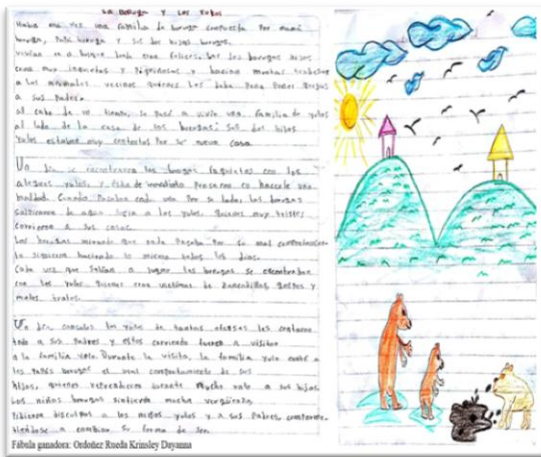 La boruga y los yulos
Había una vez una familia de borugas compuesta por mamá
boruga, papá boruga y sus dos hijos borugas,
vivían en el bosque todo eran felices. Los dos borugas hijos
eran muy inquietos y Pigridosos y hacían muchas
a los animales vecinos quienes les daba pena poner quejas
a sus padres.
al cabo de un tiempo, se pasó a vivir una familia de yulos
al lado de la casa de los borugas; sus dos hijos
yulos estaban muy contentos por su nueva casa
Un día se encontraron los borugas con los
alegres yulos, y éstos de inmediato pensaron en hacerle una
maldad. Cuando pasaba cada uno por su lado, los borugas
salticaron de agua sucia a los yulos. Quienes muy tristes
corrieron a sus casas.
Los borugas mirando que nada pasaba por su mal comportamiento
le siguieron haciendo lo mismo todos los días.
Cada vez que salían a jugar los borugas se encontraban
con los yulos quienes eran víctimas de zancadillas, golpes y
malos tratos.
Un día, cansados los yulos de tantas ofensas les contaron
todo a sus padres y estos corriendo fueron a visitar
a la familia Durante la visita, la familia yulo contó a
los papás borugas el mal comportamiento de sus
hijos, quienes durante mucho rato a sus hijos.
Los niños borugas sintieron mucha vergüenza
Pidieron disculpas a los niños yulos y a sus padres,
a cambiar su forma de ser.
Fábula ganadora: Ordoñez Rueda Krinsley Dayanna